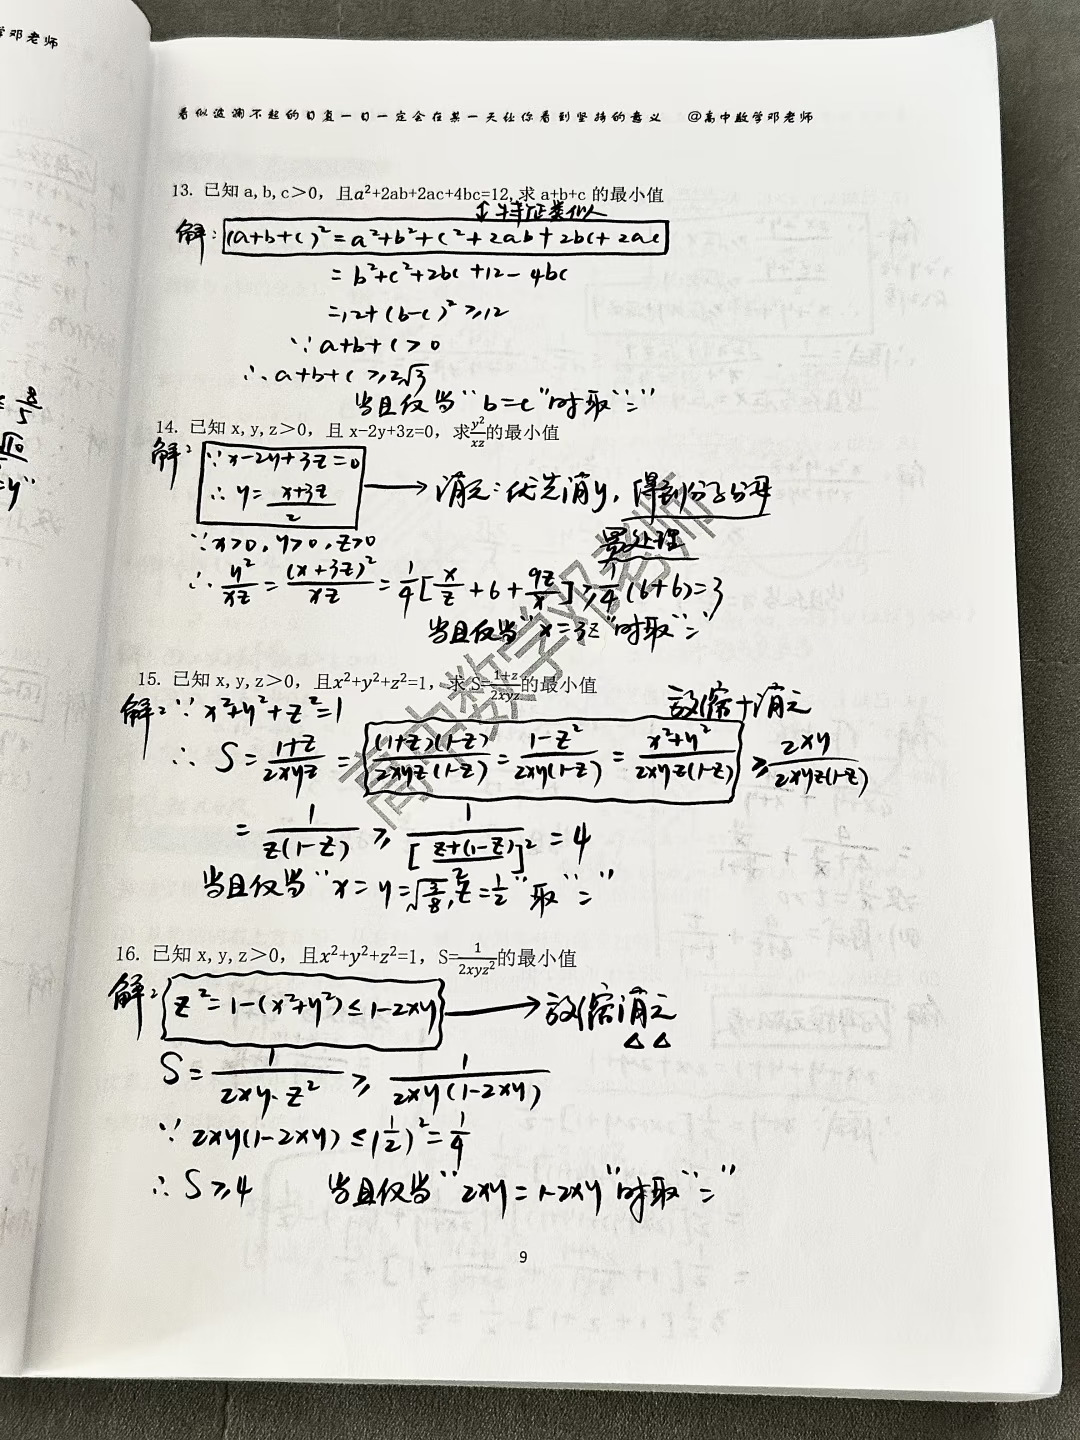 学邓老师
看似波澜不起的日复一日一定会在某一天让你看到坚持的意义 @高中数学邓老师
13. 已知 a,b,c＞0，且a²+2ab+2ac+4bc=12,求 a+b+c 的最小值
特征类似
解: (a+b+c)²=a²+b²+c²+2ab+2bc+2ac
=b²+c²+2bc+12-4bc
=12+(b-c)²≥12
∵a+b+c>0
∴a+b+c≥2√3
当且仅当"b=c"时取"="
14. 已知 x,y,z＞0，且 x-2y+3z=0，求y²/xz的最小值
解: ∵x-2y+3z=0
∴y=(x+3z)/2 → 消元:优先消y，得到分子分母
∵x>0,y>0,z>0 贸处理
∴ y²/xz=(x+3z)²/xz=1/4[x/z+6+9z/x]≥1/4(6+6)=3
当且仅当"x=3z"时取"="
15. 已知 x,y,z＞0，且x²+y²+z²=1，求 S=(1+z)/2xyz的最小值
解: ∵x²+y²+z²=1 放缩+消元
∴ S=(1+z)/2xyz=(1+z)(1-z)/2xyz(1-z)=(1-z²)/2xy(1-z)=(x²+y²)/2xyz(1-z)≥2xy/2xyz(1-z)
=1/z(1-z)≥1/[(z+(1-z))/2]²=4
当且仅当"x=y=√(3/8),z=1/2"取"="
16. 已知 x,y,z＞0，且x²+y²+z²=1，S=1/2xyz²的最小值
解: z²=1-(x²+y²)≤1-2xy → 放缩消元
S=1/2xy·z²≥1/2xy(1-2xy)
∵2xy(1-2xy)≤(1/2)²=1/4
∴S≥4 当且仅当"2xy=1-2xy"时取"="
9
高中数学邓老师